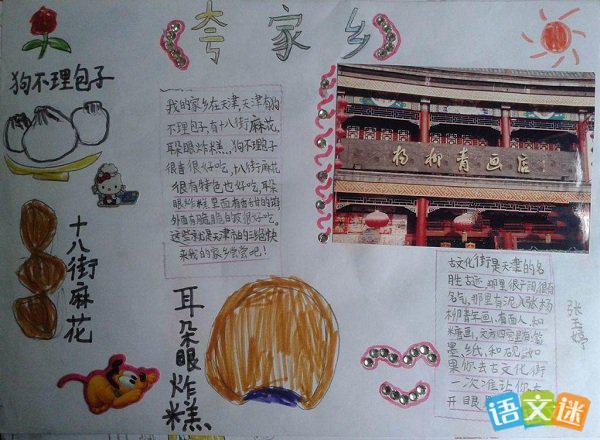 夸家乡
狗不理包子
我的家乡在天津,天津有狗
不理包子,有十八街麻花,
耳朵眼炸糕。狗不理包子
很香很好吃,十八街麻花
很有特色也好吃,耳朵
眼炸糕里面有香甜的馅
外面有脆脆的皮很好吃。
这些就是天津市的三绝快
来我的家乡尝尝吧!
杨柳青画店
十八街麻花
耳朵眼炸糕
古文化街是天津的名
胜古迹,那里很
名气,那里有泥人张杨
柳青年画,有面人,和
糖画,文房四宝里有笔
墨,纸,和砚,如
果你去古文化街
一次准让你大
开眼
张玉婷
语文迷